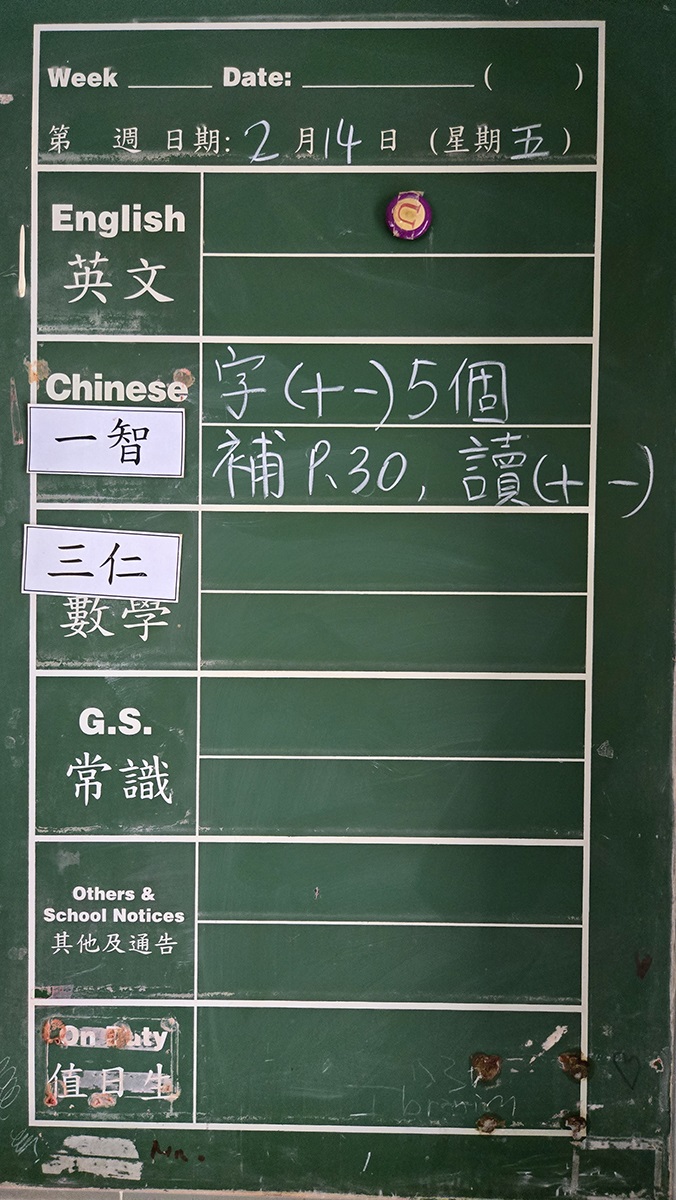 Week ______ Date: ____________ (       )
第 週 日期: 2 月 14 日 (星期 五 )
English
英文
Chinese
字(十一)5個
一智
補 P.30, 讀(十一)
三仁
數學
G.S.
常識
Others &
School Notices
其他及通告
On Duty
值日生
Nr.